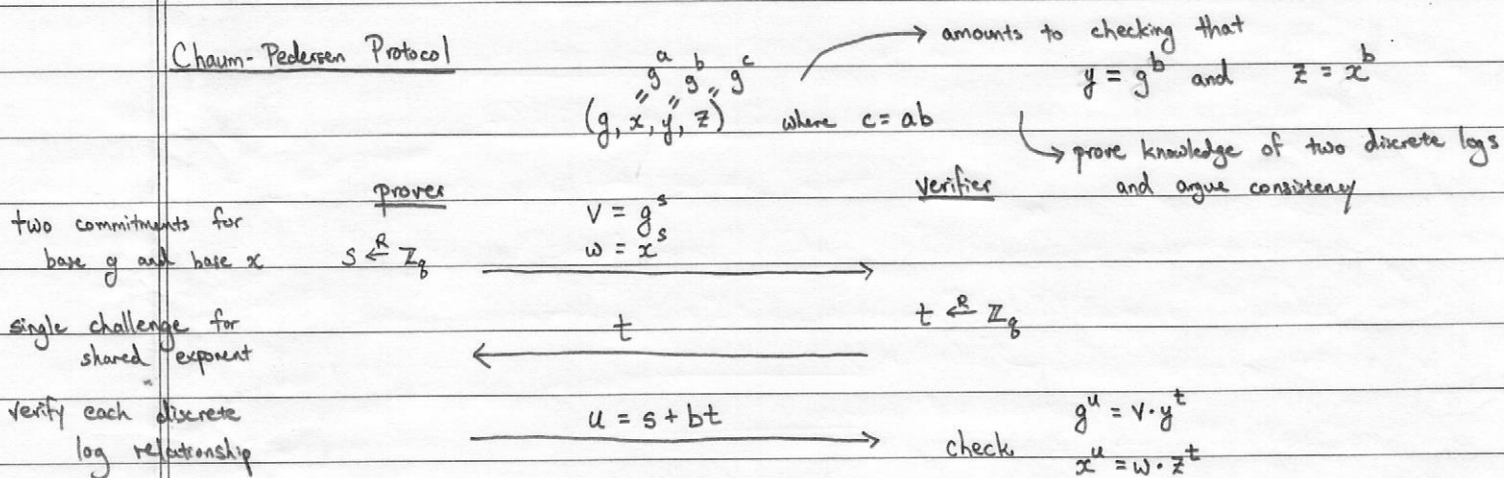 Chaum-Pedersen Protocol
→ amounts to checking that
g^a g^b g^c
y = g^b and z = x^b
(g, x, y, z) where c = ab
→ prove knowledge of two discrete logs
and argue consistency
prover
verifier
two commitments for
base g and base x
s ←R ℤ_q
v = g^s
w = x^s
single challenge for
shared exponent
t
t ←R ℤ_q
verify each discrete
log relationship
u = s + bt
check
g^u = v · y^t
x^u = w · z^t